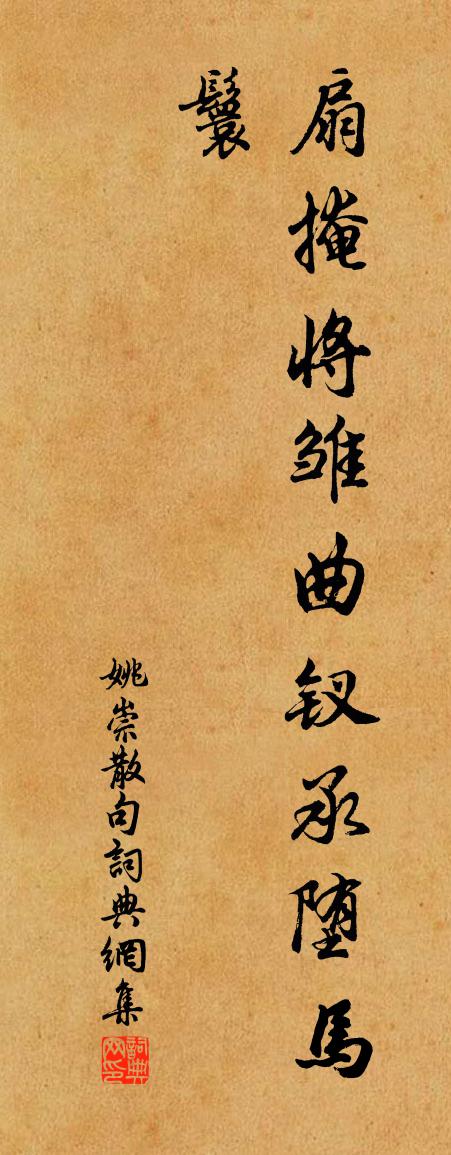 扇掩将雏曲钗承堕马
鬟
姚崇散句詞典網集
詞典
网印